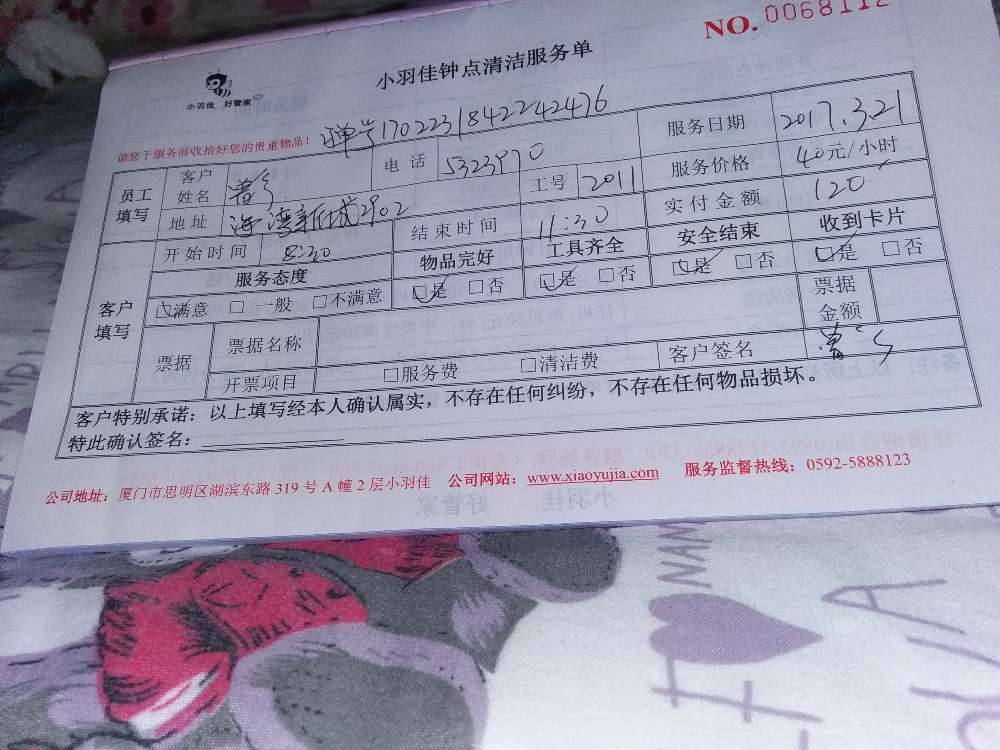 NO.0068112
小羽佳钟点清洁服务单
小羽佳 好管家
请您于服务前收拾好您的贵重物品！ 单号1702231842242476
员工填写 客户姓名 曾 电话 5323970 服务日期 2017.3.21
地址 海湾新城2902 工号 2011 服务价格 40元/小时
客户填写 开始时间 8:30 结束时间 11:30 实付金额 120
服务态度 物品完好 工具齐全 安全结束 收到卡片
☑满意 □一般 □不满意 ☑是 □否 ☑是 □否 ☑是 □否 ☑是 □否
票据 票据名称 票据金额
开票项目 □服务费 □清洁费 客户签名 曾
客户特别承诺：以上填写经本人确认属实，不存在任何纠纷，不存在任何物品损坏。
特此确认签名：
公司地址：厦门市思明区湖滨东路 319 号 A 幢 2 层小羽佳 公司网站：www.xiaoyujia.com 服务监督热线：0592-5888123
小羽佳 好管家
I
NAM